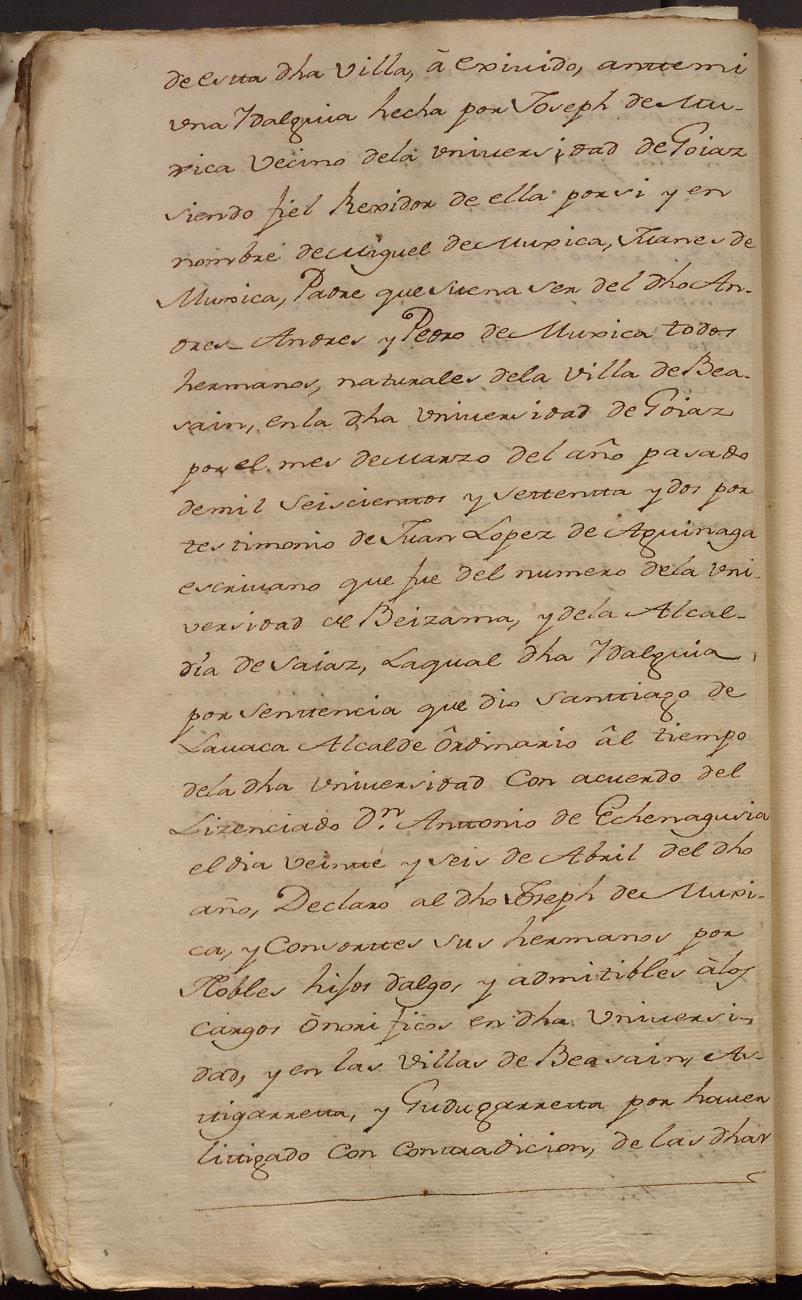 de estta dha villa, â exiuido, anttemi
vna Ydalguia hecha por Joseph de Mu-
xica Vecino dela vniuersidad de Goiaz
siendo fiel Rexidor de ella por si y en
nombre de Miguel de Muxica, Juanes de
Muxica, Padre que suena ser del dho An-
dres Andres y Pedro de Muxica todos
hermanos, naturales dela villa de Bea-
sain, enla dha vniuersidad de Goiaz
por el mes de Marzo del año pasado
demil seiscienttos y settentta y dos por
testimonio de Juan Lopez de Aguinaga
escriuano que fue del numero dela vni-
versidad de Beizama, y dela Alcal-
dia de Saiaz, Laqual dha Ydalguia
por senttencia que dio Santtiago de
Lauaca Alcalde ôrdinario âl tiempo
dela dha vniuersidad con acuerdo del
Lizenciado Dn. Anttonio de Echenagusia
el dia veintte y seis de Abril del dho
año, Declaro al dho Joseph de Muxi-
ca, y Consorttes sus hermanos por
Nobles hijos dalgo, y admitibles âlos
cargos ônorificos en dha vniuersi-
dad, y en las villas de Beasain, As-
ttigarretta, y Gudugarretta por hauer
littigado con conttradicion, de las dhas